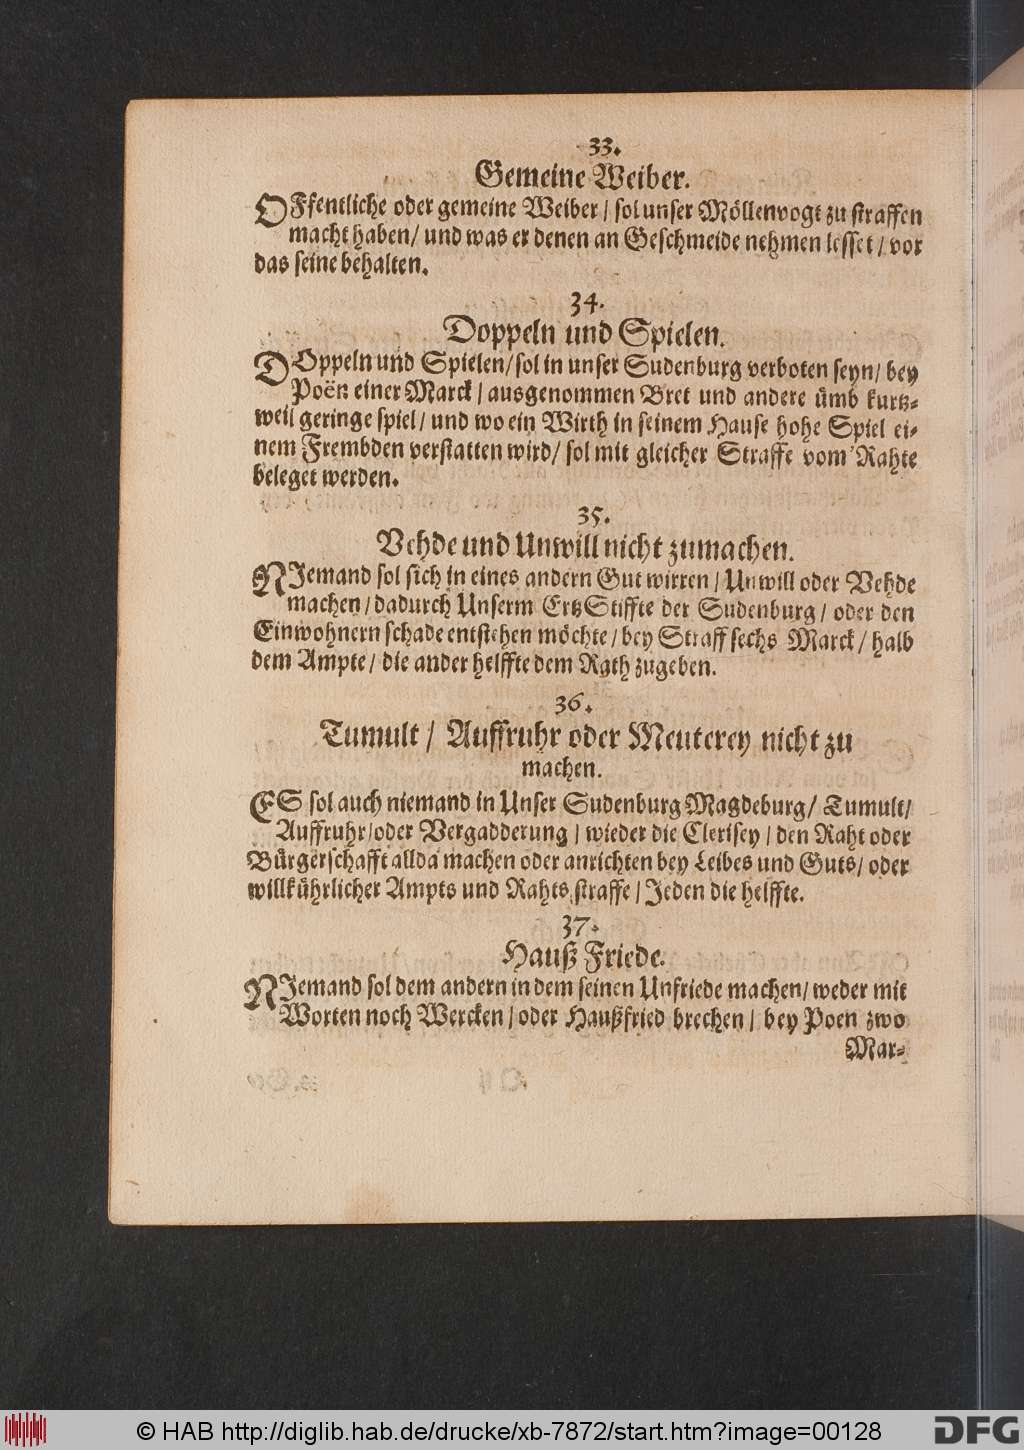 33.
Gemeine Weiber.
OFfentliche oder gemeine Weiber / sol unser Möllenvogt zu straffen
macht haben / und was er denen an Geschmeide nehmen lesset / vor
das seine behalten.
34.
Doppeln und Spielen.
DOppeln und Spielen / sol in unser Sudenburg verboten seyn / bey
Poën einer Marck / ausgenommen Bret und andere ümb kurtz-
weil geringe spiel / und wo ein Wirth in seinem Hause hohe Spiel ei-
nem Frembden verstatten wird / sol mit gleicher Straffe vom Rahte
beleget werden.
35.
Vehde und Unwill nicht zumachen.
NIemand sol sich in eines andern Gut wirren / Unwill oder Vehde
machen / dadurch Unserm ErtzStiffte der Sudenburg / oder den
Einwohnern schade entstehen möchte / bey Straff sechs Marck / halb
dem Ampte / die ander helffte dem Rath zugeben.
36.
Tumult / Auffruhr oder Meuterey nicht zu
machen.
ES sol auch niemand in Unser Sudenburg Magdeburg / Tumult /
Auffruhr / oder Vergadderung / wieder die Clerisey / den Raht oder
Bürgerschafft allda machen oder anrichten bey Leibes und Guts / oder
willkührlicher Ampts und Rahts straffe / Jeden die helffte.
37.
Hauß Friede.
NIemand sol dem andern in dem seinen Unfriede machen / weder mit
Worten noch Wercken / oder Haußfried brechen / bey Poen zwo
Mar-
© HAB http://diglib.hab.de/drucke/xb-7872/start.htm?image=00128
DFG